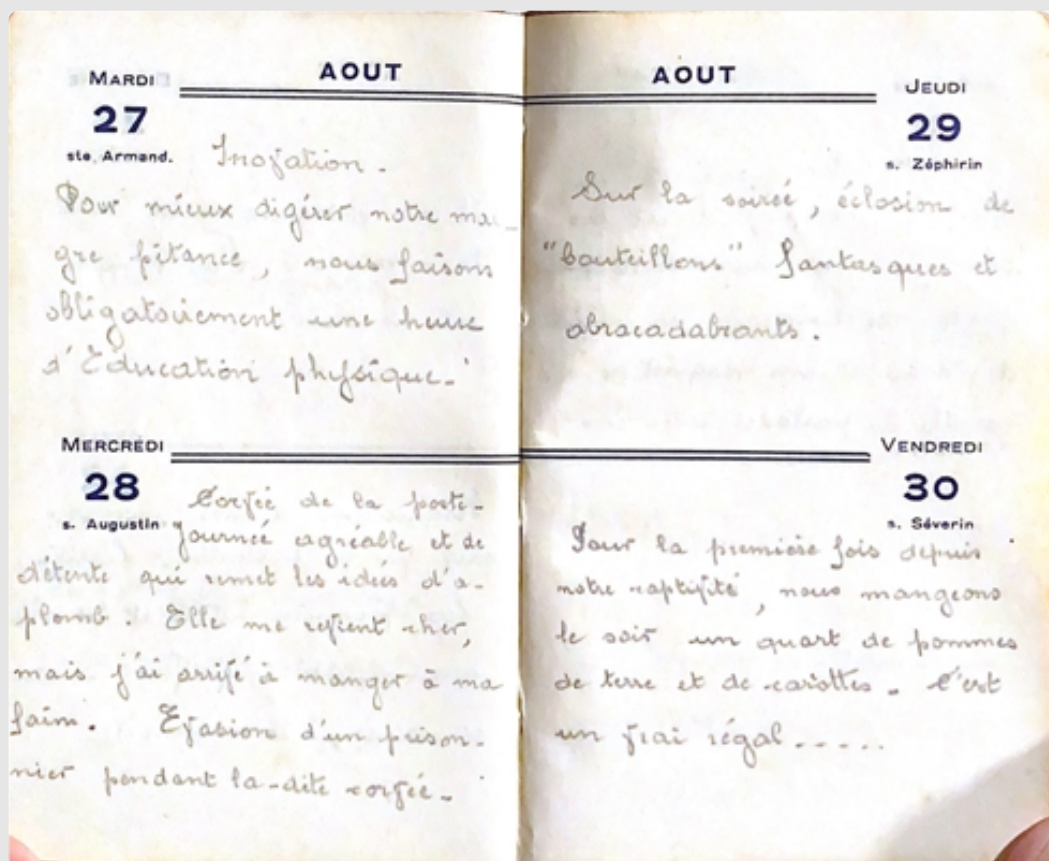 AOUT
MARDI
27
ste. Armand.
Inovation.
Pour mieux digérer notre mai-
gre pitance, nous faisons
obligatoirement une heure
d'Education physique.
MERCREDI
28
s. Augustin
Corvée de la poste.
Journée agréable et de
détente qui remet les idées d'a-
plomb. Elle me revient cher,
mais j'ai arrivé à manger à ma
faim. Evasion d'un prison-
nier pendant la-dite corvée.
AOUT
JEUDI
29
s. Zéphirin
Sur la soirée, éclosion de
"bouteillons" fantasques et
abracadabrants.
VENDREDI
30
s. Séverin
Pour la première fois depuis
notre captivité, nous mangeons
le soir un quart de pommes
de terre et de carottes. C'est
un vrai régal.....